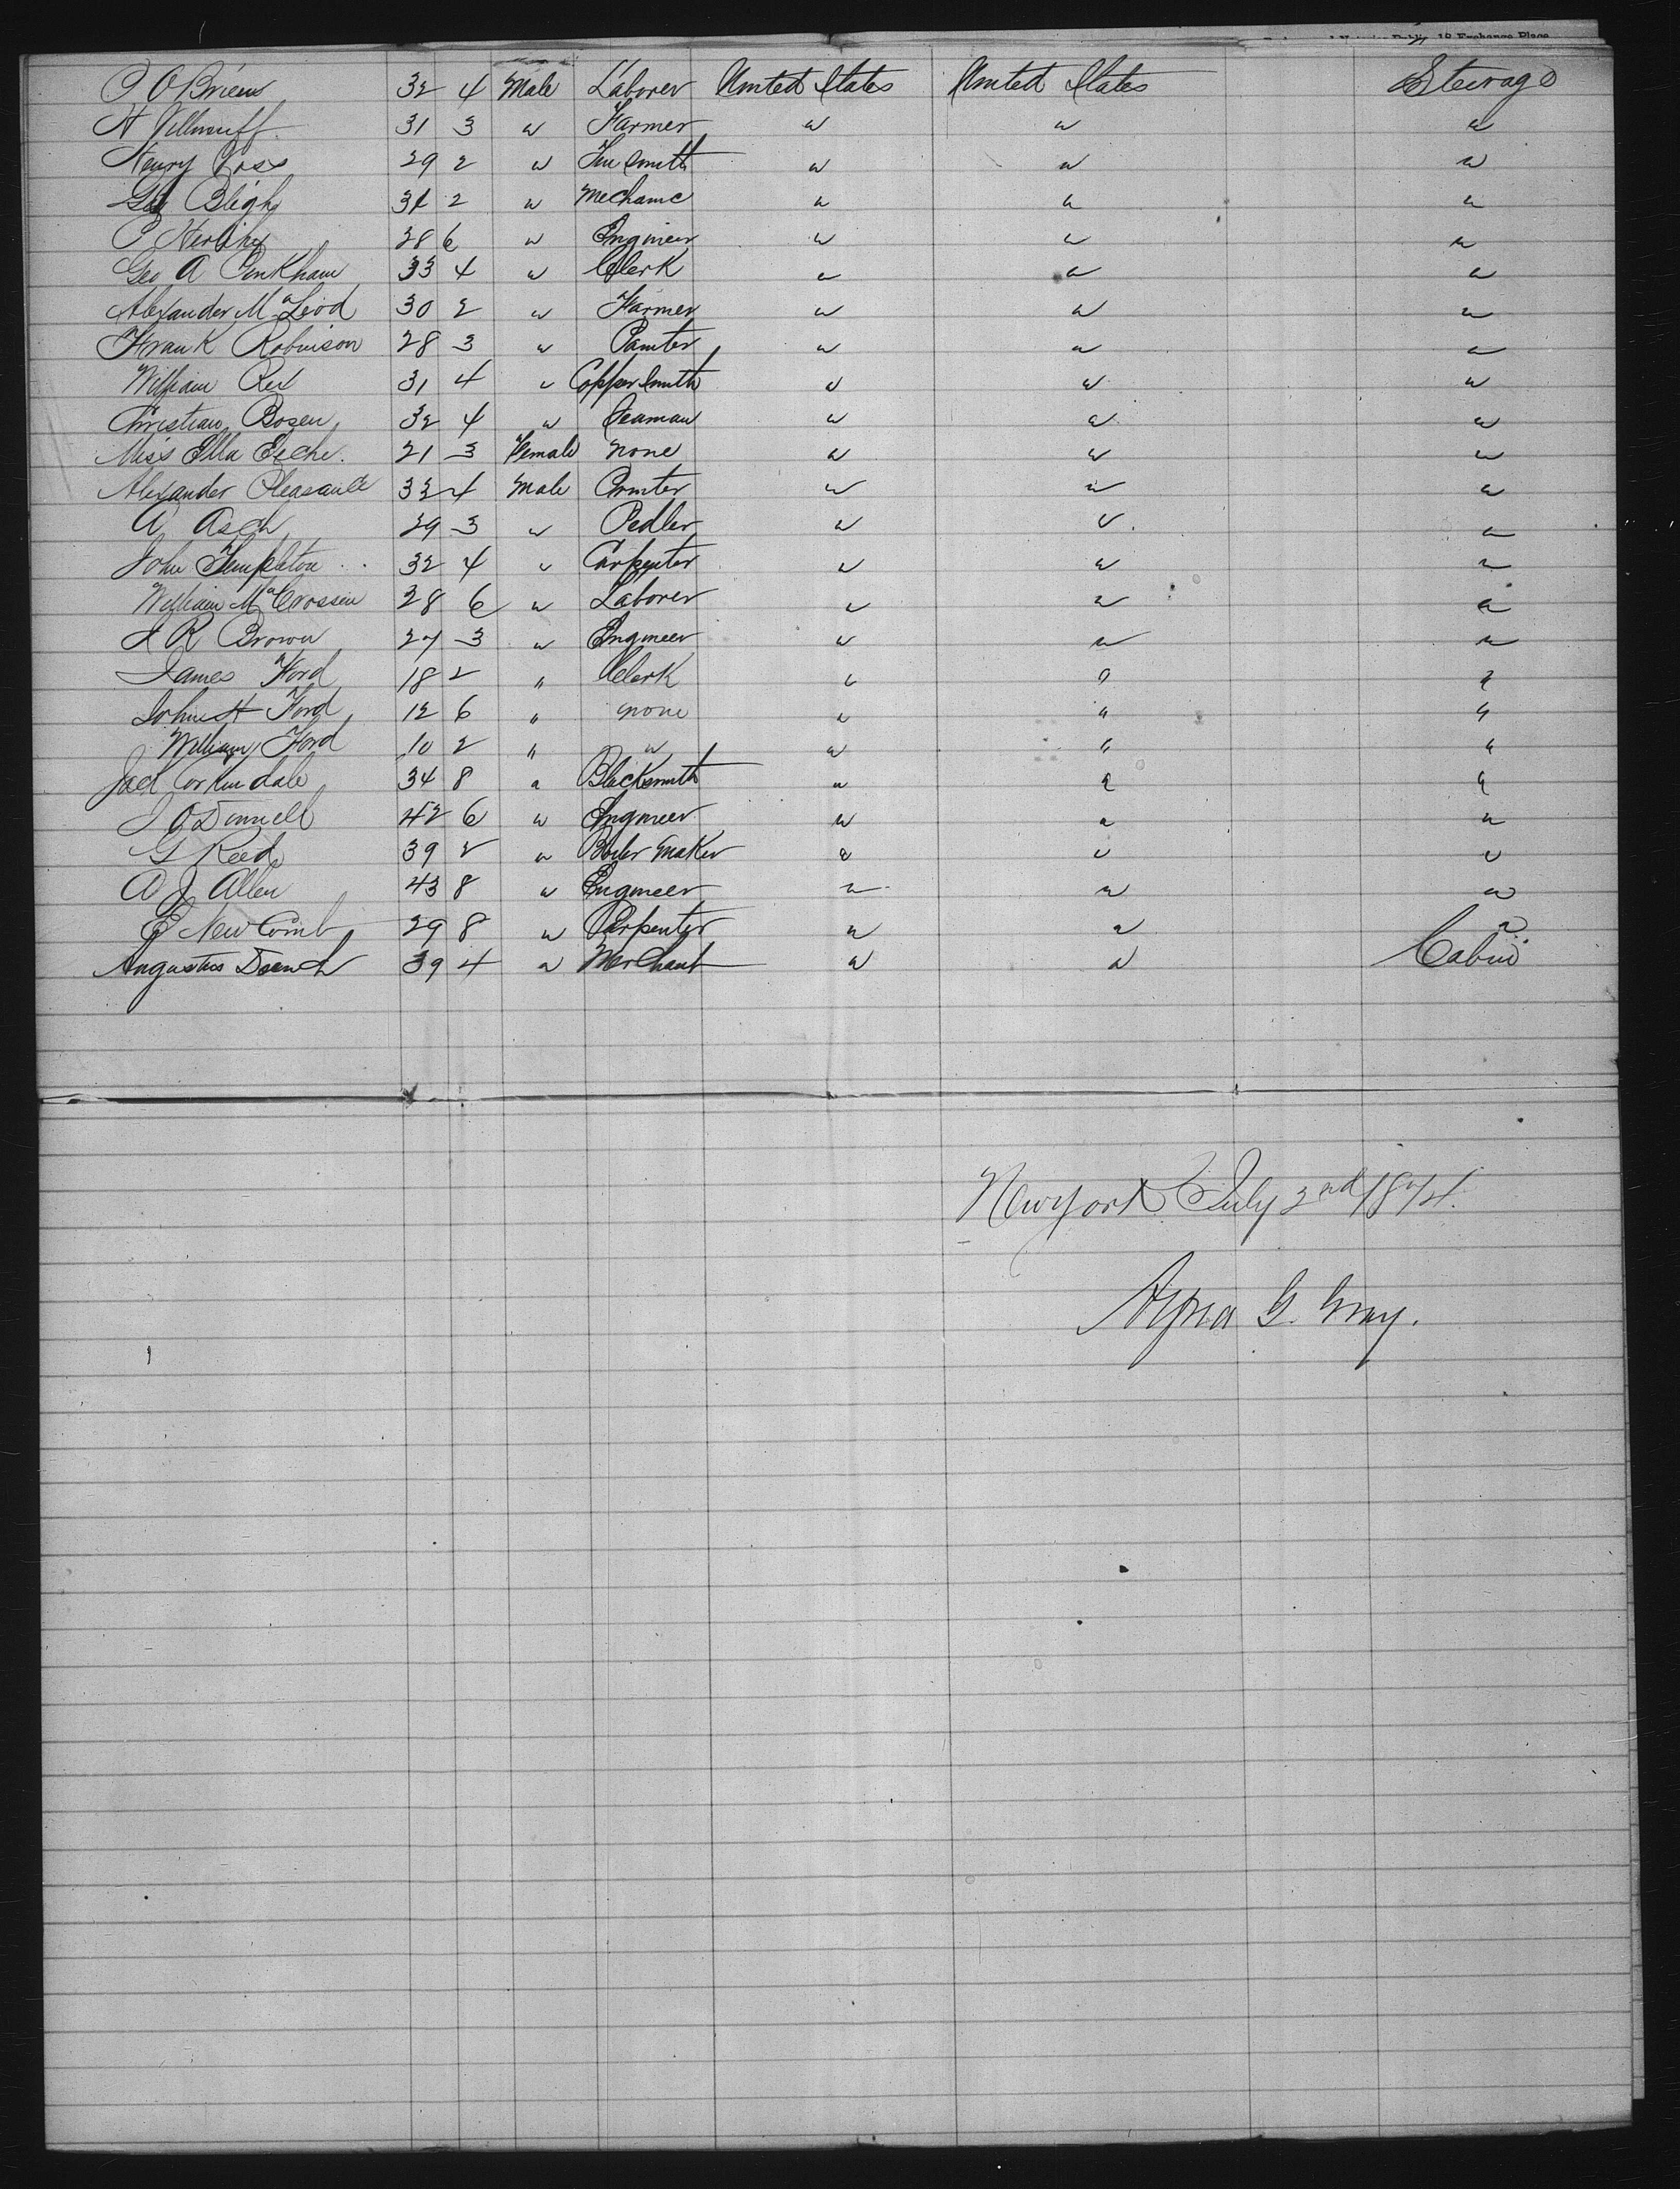 P O'Briens 32 4 Male Laborer United States United States Steerage
H 31 3 " Farmer " " "
Henry Ross 29 2 " Tin Smith " " "
Geo Bligh 34 2 " Mechanic " " "
P 28 6 " Engineer " " "
Geo A PinKham 33 4 " Clerk " " "
Alexander McLeod 30 2 " Farmer " " "
Frank Robinson 28 3 " Painter " " "
William Rex 31 4 " Copper Smith " " "
Christian Bosen 32 4 " Seaman " " "
Miss Ella 21 3 Female none " " "
Alexander Pleasault 32 4 Male Printer " " "
A Asch 29 3 " Pedler " " "
John Templeton 32 4 " Carpenter " " "
William McCrossin 28 6 " Laborer " " "
J R Brown 27 3 " Engineer " " "
James Ford 18 2 " Clerk " " "
John H Ford 12 6 " none " " "
William Ford 10 2 " " " " "
Jack Corkindale 34 8 " Blacksmith " " "
J O'Donnell 42 6 " Engineer " " "
G Reed 39 2 " Boiler Maker " " "
A J Allen 43 8 " Engineer " " "
E NewComb 29 8 " Carpenter " " "
Augustus 39 4 " Merchant " " Cabin
New York July 2nd 1874.
G. Gray.